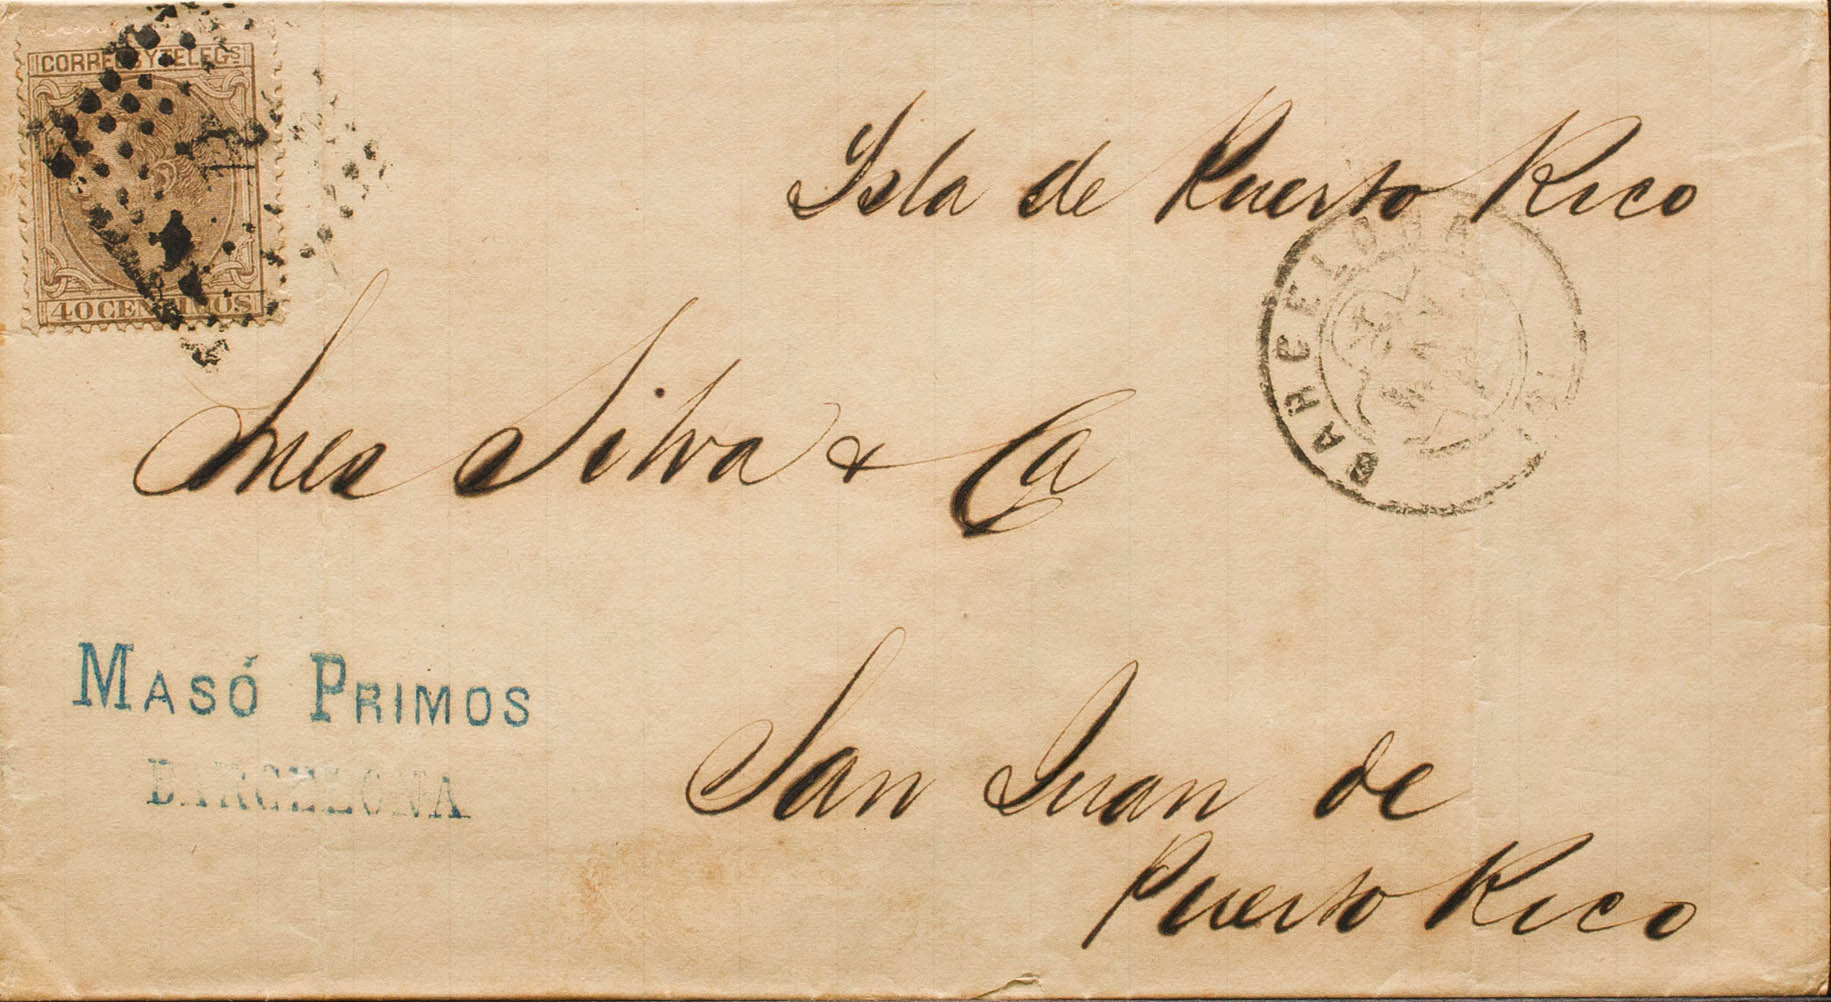 CORREOS Y TELEGS
40 CENTIMOS
Isla de Puerto Rico
BARCELONA
Sres Silva & Ca
MASÓ PRIMOS
BARCELONA
San Juan de
Puerto Rico